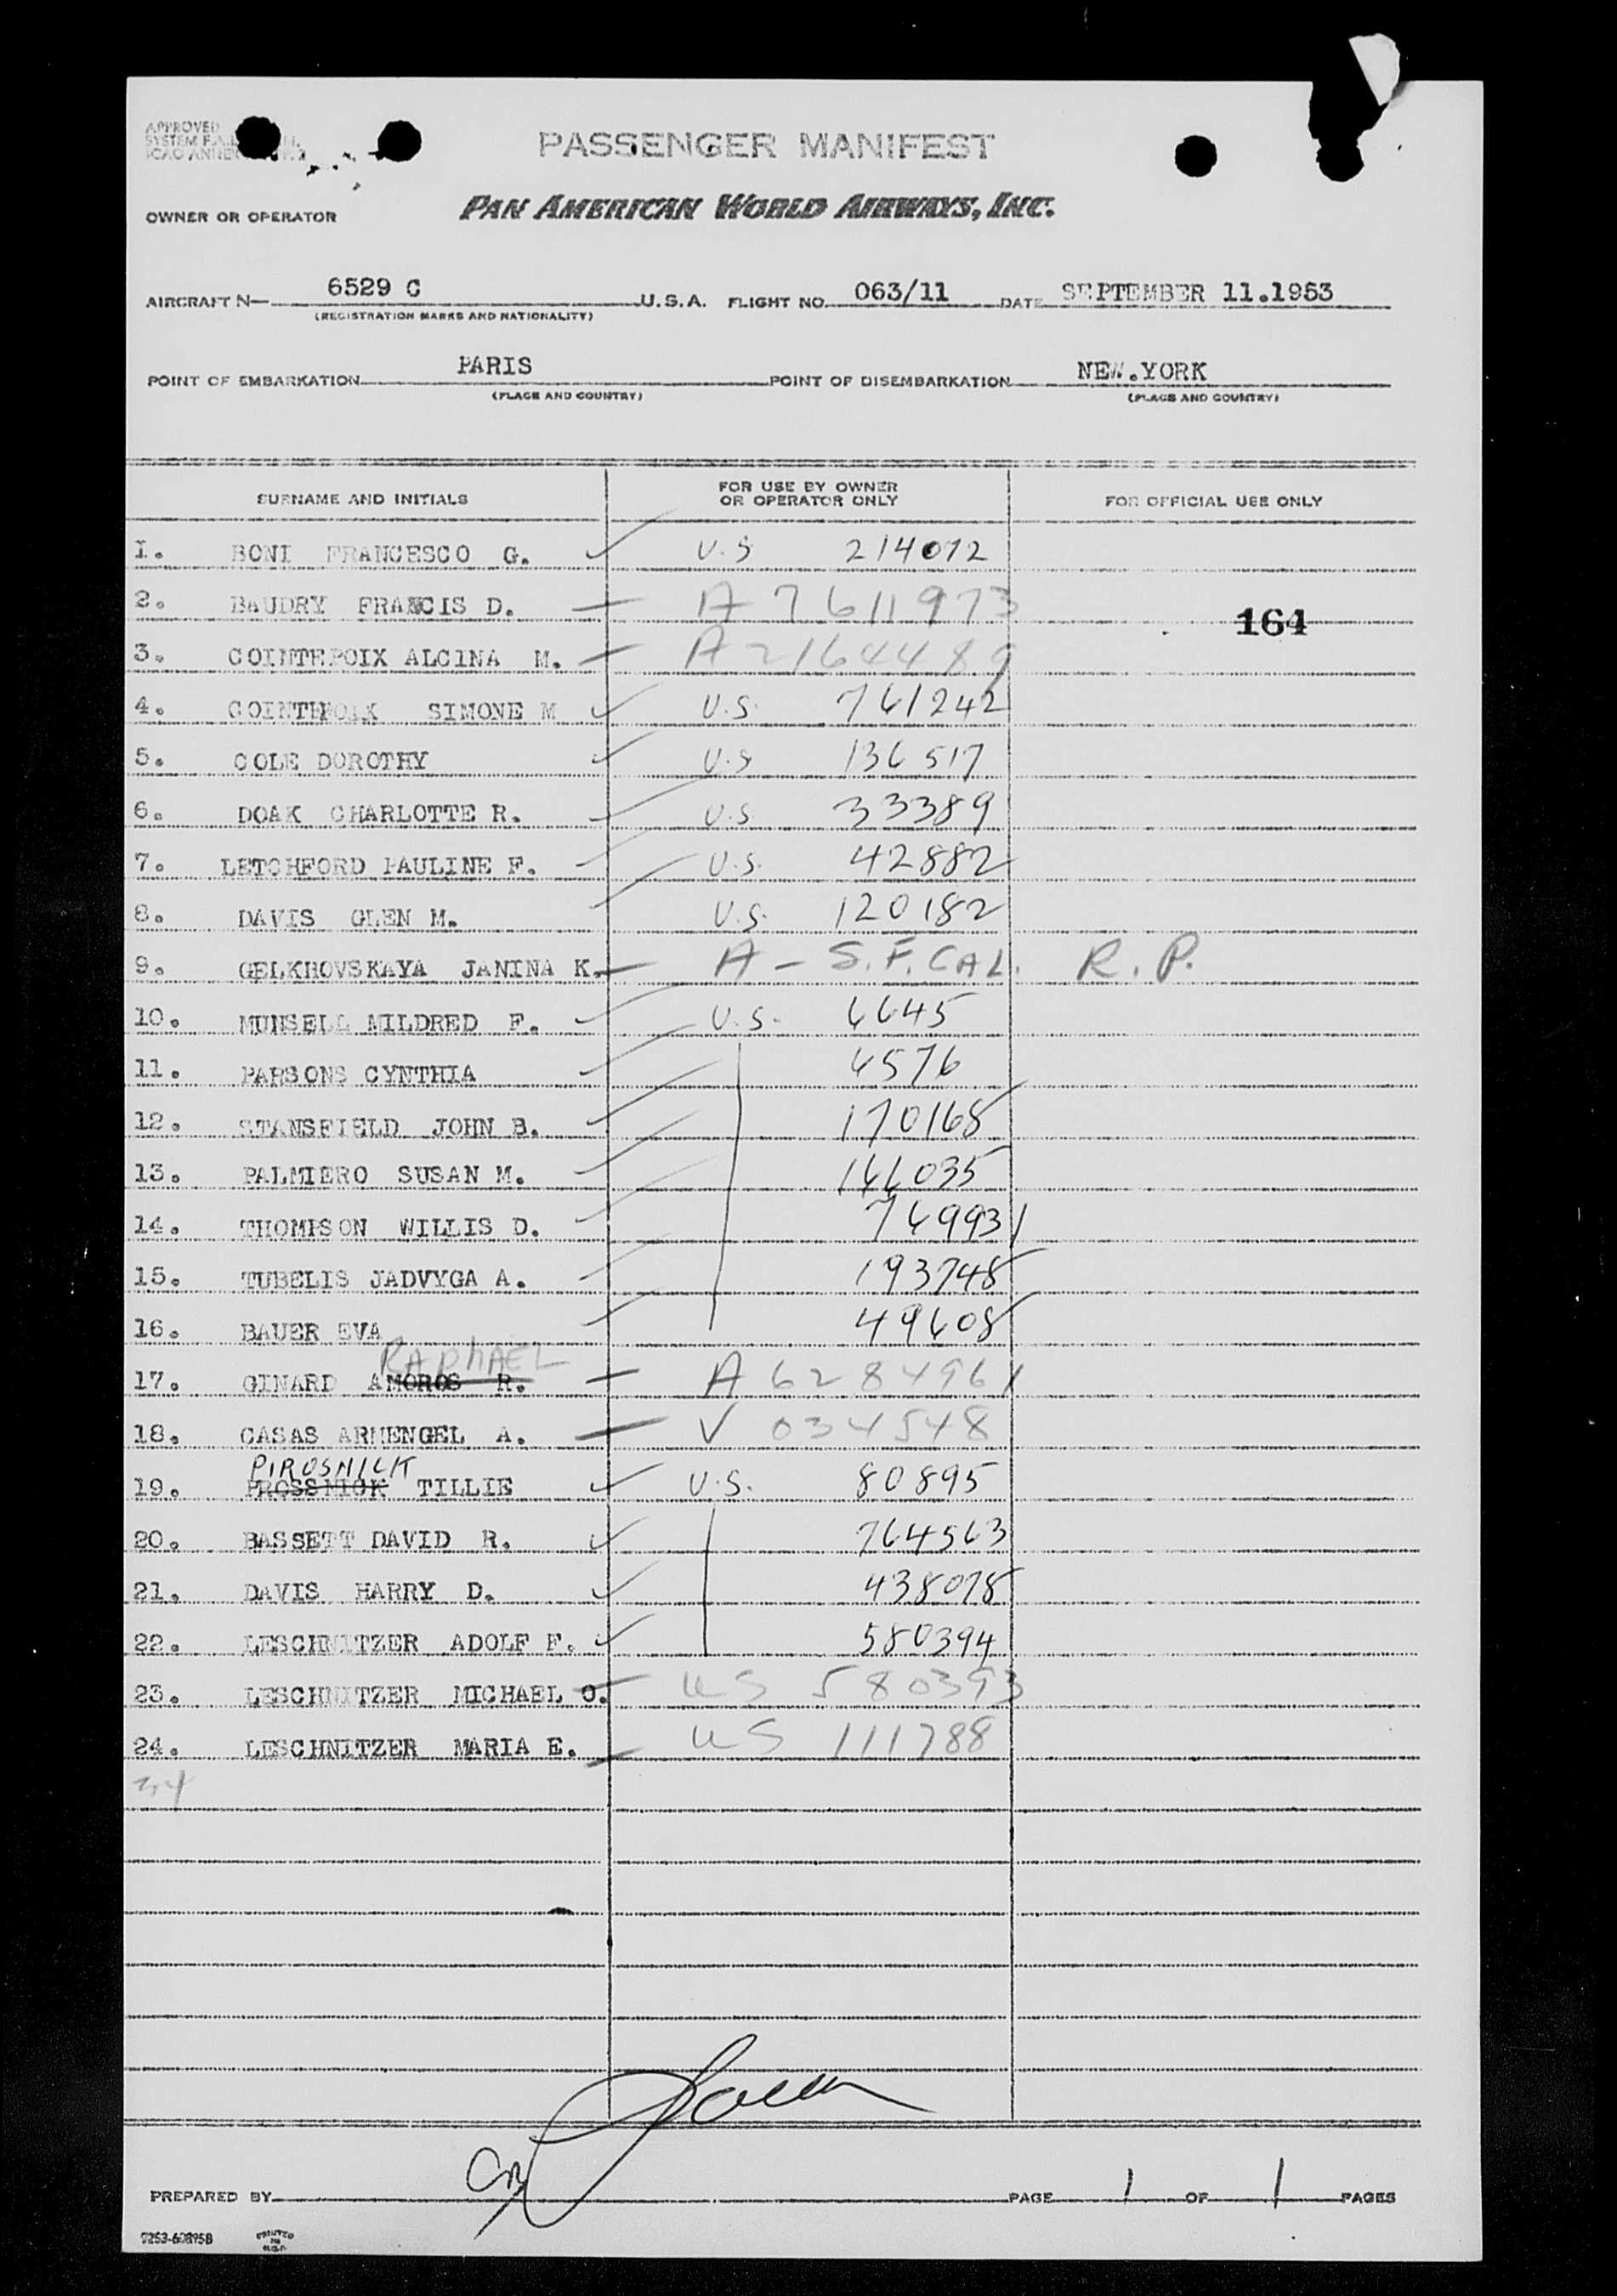 APPROVED
SYSTEM F.A.L.
ICAO ANNEX
PASSENGER MANIFEST
OWNER OR OPERATOR PAN AMERICAN WORLD AIRWAYS, INC.
AIRCRAFT N— 6529 C U.S.A. FLIGHT NO. 063/11 DATE SEPTEMBER 11.1953
(REGISTRATION MARKS AND NATIONALITY)
POINT OF EMBARKATION PARIS POINT OF DISEMBARKATION NEW.YORK
(PLACE AND COUNTRY) (PLACE AND COUNTRY)
SURNAME AND INITIALS FOR USE BY OWNER OR OPERATOR ONLY FOR OFFICIAL USE ONLY
1. BONI FRANCESCO G. U.S 214072
2. BAUDRY FRANCIS D. A 7611973 164
3. COINTEPOIX ALCINA M. A 2164489
4. COINTEPOIX SIMONE M U.S. 761242
5. COLE DOROTHY U.S 136517
6. DOAK CHARLOTTE R. U.S 33389
7. LETCHFORD PAULINE F. U.S. 42882
8. DAVIS GLEN M. U.S. 120182
9. GELKHOVSKAYA JANINA K. A - S.F. CAL. R.P.
10. MUNSELL MILDRED F. U.S. 6645
11. PARSONS CYNTHIA 6576
12. STANSFIELD JOHN B. 170168
13. PALMIERO SUSAN M. 166035
14. THOMPSON WILLIS D. 769931
15. TUBELIS JADVYGA A. 193748
16. BAUER EVA 49608
RAPHAEL
17. GINARD AMOROS R. A 6284961
18. CASAS ARMENGEL A. V 034548
PIROSNICK
19. PROSSNICK TILLIE U.S. 80895
20. BASSETT DAVID R. 764563
21. DAVIS HARRY D. 438078
22. LESCHNITZER ADOLF F. 580394
23. LESCHNITZER MICHAEL O. US 580393
24. LESCHNITZER MARIA E. US 111788
PREPARED BY PAGE 1 OF 1 PAGES
PRINTED IN U.S.A.